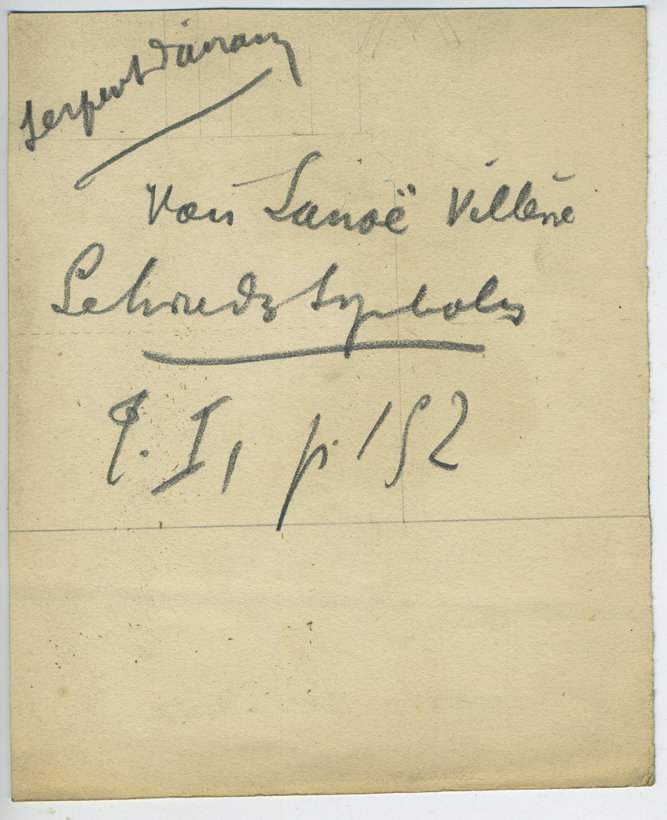 Serpent d'airain
Voir Lanoë Villène
Le livre des Symboles
T. I, p. 152